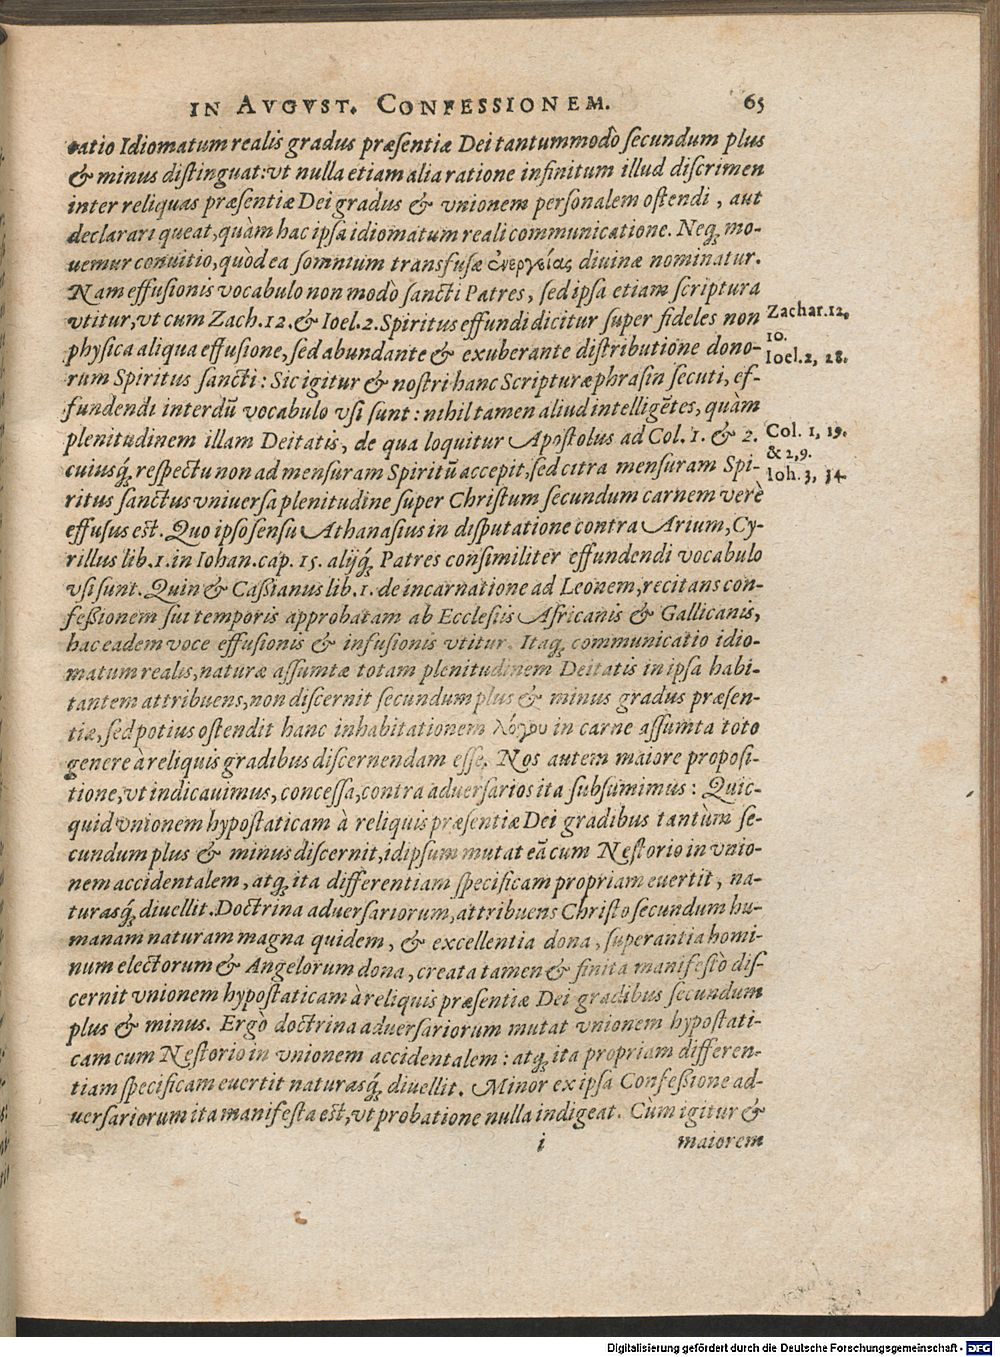 IN AVGVST. CONFESSIONEM. 65
catio Idiomatum realis gradus præsentiæ Dei tantummodò secundum plus
& minus distinguat: vt nulla etiam alia ratione infinitum illud discrimen
inter reliquas præsentiæ Dei gradus & vnionem personalem ostendi, aut
declarari queat, quàm hac ipsa idiomatum reali communicatione. Neq́; mo-
uemur conuitio, quòd ea somnium transfusæ ἐνεργείας diuinæ nominatur.
Nam effusionis vocabulo non modò sancti Patres, sed ipsa etiam scriptura
vtitur, vt cum Zach. 12. & Ioel. 2. Spiritus effundi dicitur super fideles non
Zachar. 12,
10.
physica aliqua effusione, sed abundante & exuberante distributione dono-
Ioel. 2, 28.
rum Spiritus sancti: Sic igitur & nostri hanc Scripturæ phrasin secuti, ef-
fundendi interdū vocabulo vsi sunt: nihil tamen aliud intelligētes, quàm
plenitudinem illam Deitatis, de qua loquitur Apostolus ad Col. 1. & 2.
Col. 1, 19.
& 2, 9.
cuiusq́; respectu non ad mensuram Spiritū accepit, sed citra mensuram Spi-
Ioh. 3, 34.
ritus sanctus vniuersa plenitudine super Christum secundum carnem verè
effusus est. Quo ipso sensu Athanasius in disputatione contra Arium, Cy-
rillus lib. 1. in Iohan. cap. 15. alijq́; Patres consimiliter effundendi vocabulo
vsi sunt. Quin & Caßianus lib. 1. de incarnatione ad Leonem, recitans con-
feßionem sui temporis approbatam ab Ecclesiis Africanis & Gallicanis,
hac eadem voce effusionis & infusionis vtitur. Itaq́; communicatio idio-
matum realis, naturæ assumtæ totam plenitudinem Deitatis in ipsa habi-
tantem attribuens, non discernit secundum plus & minus gradus præsen-
tiæ, sed potius ostendit hanc inhabitationem λόγου in carne assumta toto
genere à reliquis gradibus discernendam esse. Nos autem maiore proposi-
tione, vt indicauimus, concessa, contra aduersarios ita subsumimus: Quic-
quid vnionem hypostaticam à reliquis præsentiæ Dei gradibus tantùm se-
cundum plus & minus discernit, id ipsum mutat eā cum Nestorio in vnio-
nem accidentalem, atq́; ita differentiam specificam propriam euertit, na-
turasq́; diuellit. Doctrina aduersariorum, attribuens Christo secundum hu-
manam naturam magna quidem, & excellentia dona, superantia homi-
num electorum & Angelorum dona, creata tamen & finita manifestò dis-
cernit vnionem hypostaticam à reliquis præsentiæ Dei gradibus secundum
plus & minus. Ergò doctrina aduersariorum mutat vnionem hypostati-
cam cum Nestorio in vnionem accidentalem: atq́; ita propriam differen-
tiam specificam euertit naturasq́; diuellit. Minor ex ipsa Confeßione ad-
uersariorum ita manifesta est, vt probatione nulla indigeat. Cùm igitur &
i maiorem
Digitalisierung gefördert durch die Deutsche Forschungsgemeinschaft - DFG